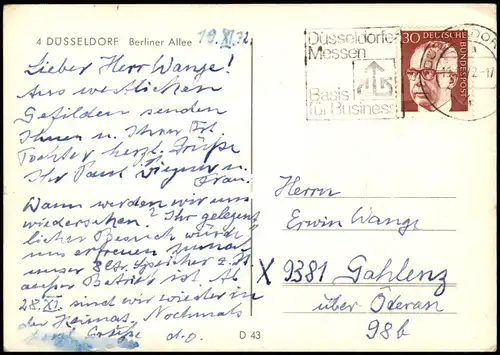 4 DÜSSELDORF Berliner Allee
19.XI.72
Lieber Herr Wange!
Aus westlichen
Gefilden senden
Ihnen u. Ihrer Frl.
Tochter herzl. Grüße
Ihr Paul Wegner u.
Frau.
Wann werden wir uns
wiedersehen? Ihr gelegent
licher Besuch würde
uns erfreuen, zumal
unser Speicher z. Zt.
außer Betrieb ist. Ab
28.XI. sind wir wieder in
der Heimat. Nochmals
herzl. Grüße d.o.
D 43
Düsseldorfer
Messen
Basis
für Business
30 DEUTSCHE BUNDESPOST
Herrn
Erwin Wange
X 9381 Gahlenz
über Öderan
98b